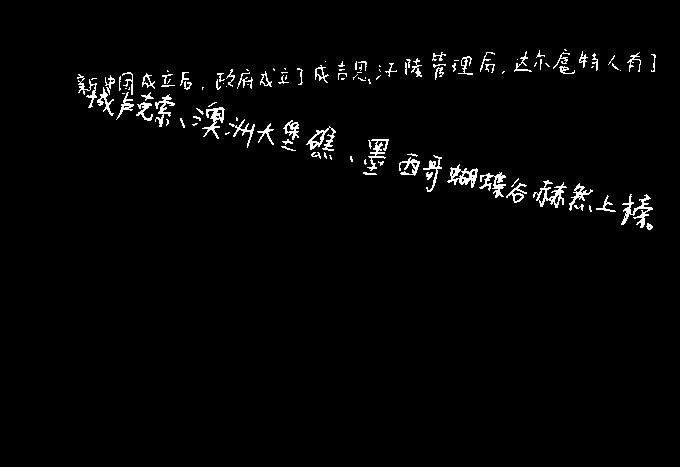 新中国成立后，政府成立了成吉思汗陵管理局，达尔扈特人有了
城卢克索、澳洲大堡礁、墨西哥蝴蝶谷赫然上榜。